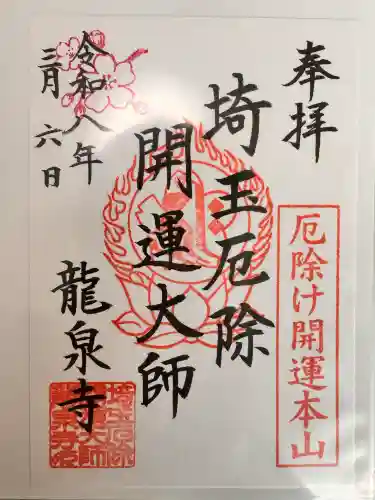 奉拝
厄除け開運本山
埼玉厄除
開運大師
令和八年
三月六日
龍泉寺